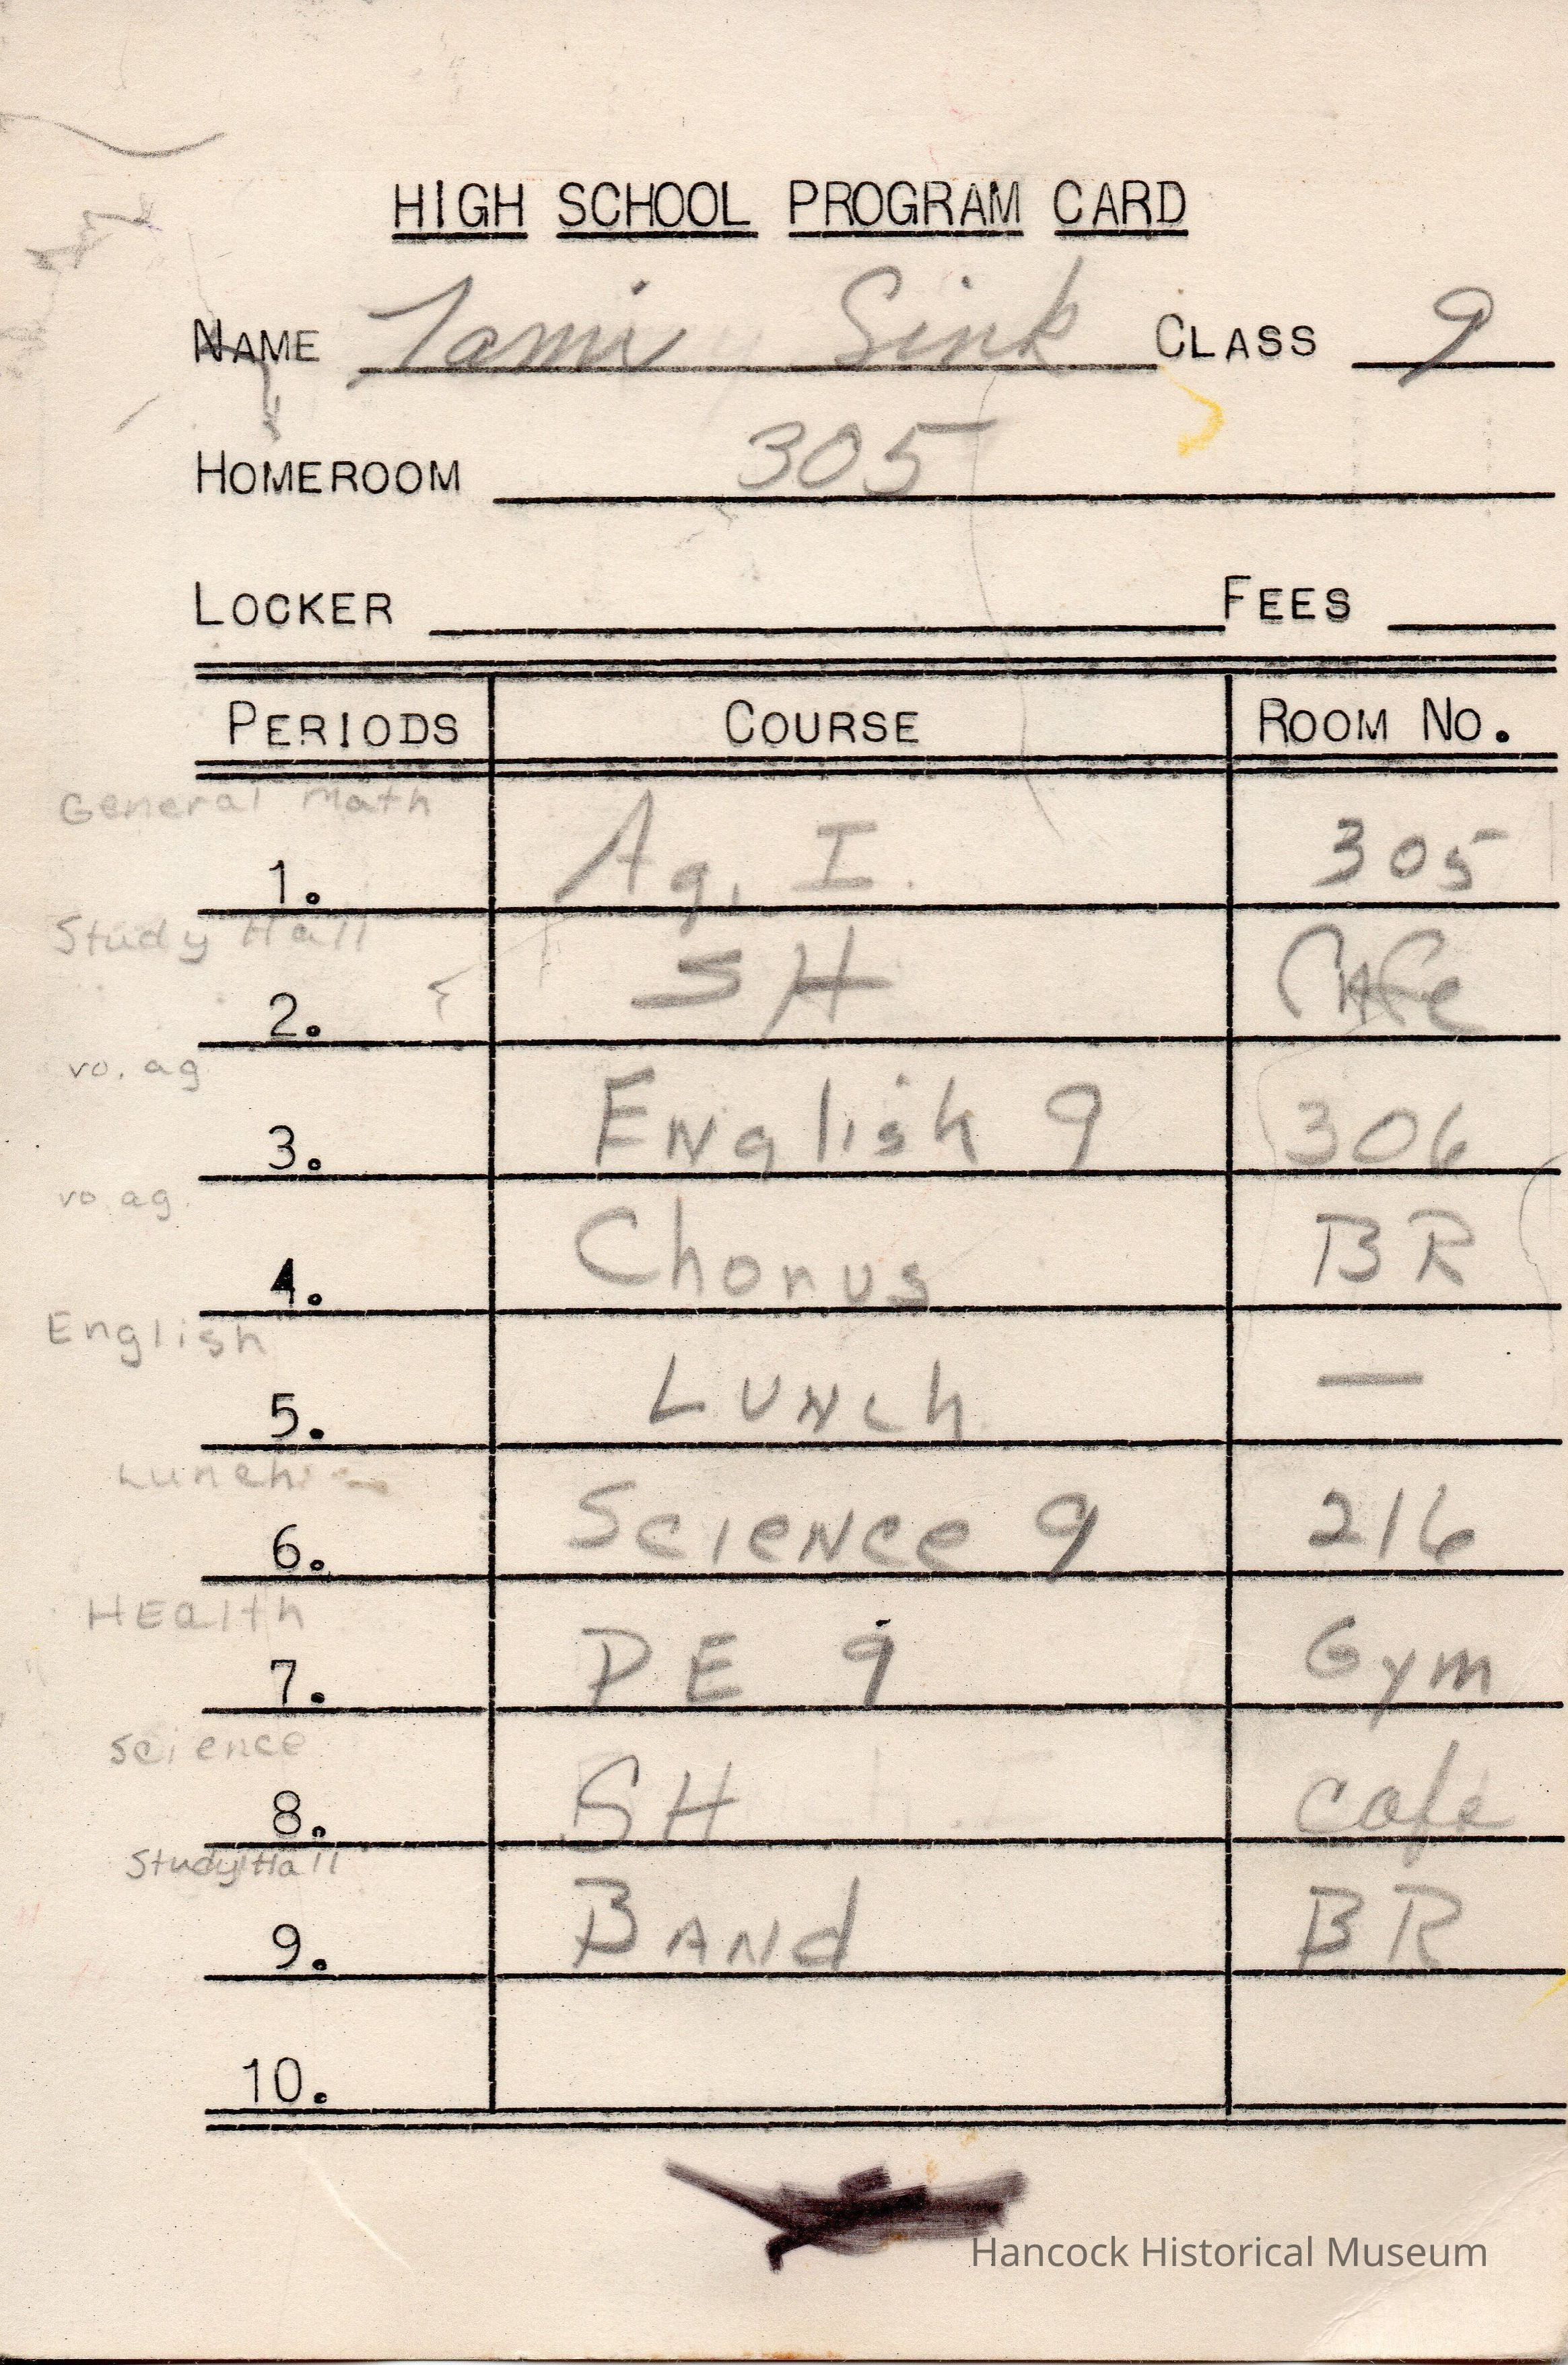 HIGH SCHOOL PROGRAM CARD
NAME Tami Sink CLASS 9
HOMEROOM 305
LOCKER FEES
PERIODS COURSE ROOM NO.
General Math
1. Ag. I. 305
Study Hall
2. SH CAFe
vo. ag
3. ENglish 9 306
vo ag.
4. Chorus BR
English
5. LUNch —
Lunch
6. ScieNce 9 216
HEalth
7. PE 9 Gym
science
8. SH cafe
Study Hall
9. BANd BR
10.
Hancock Historical Museum